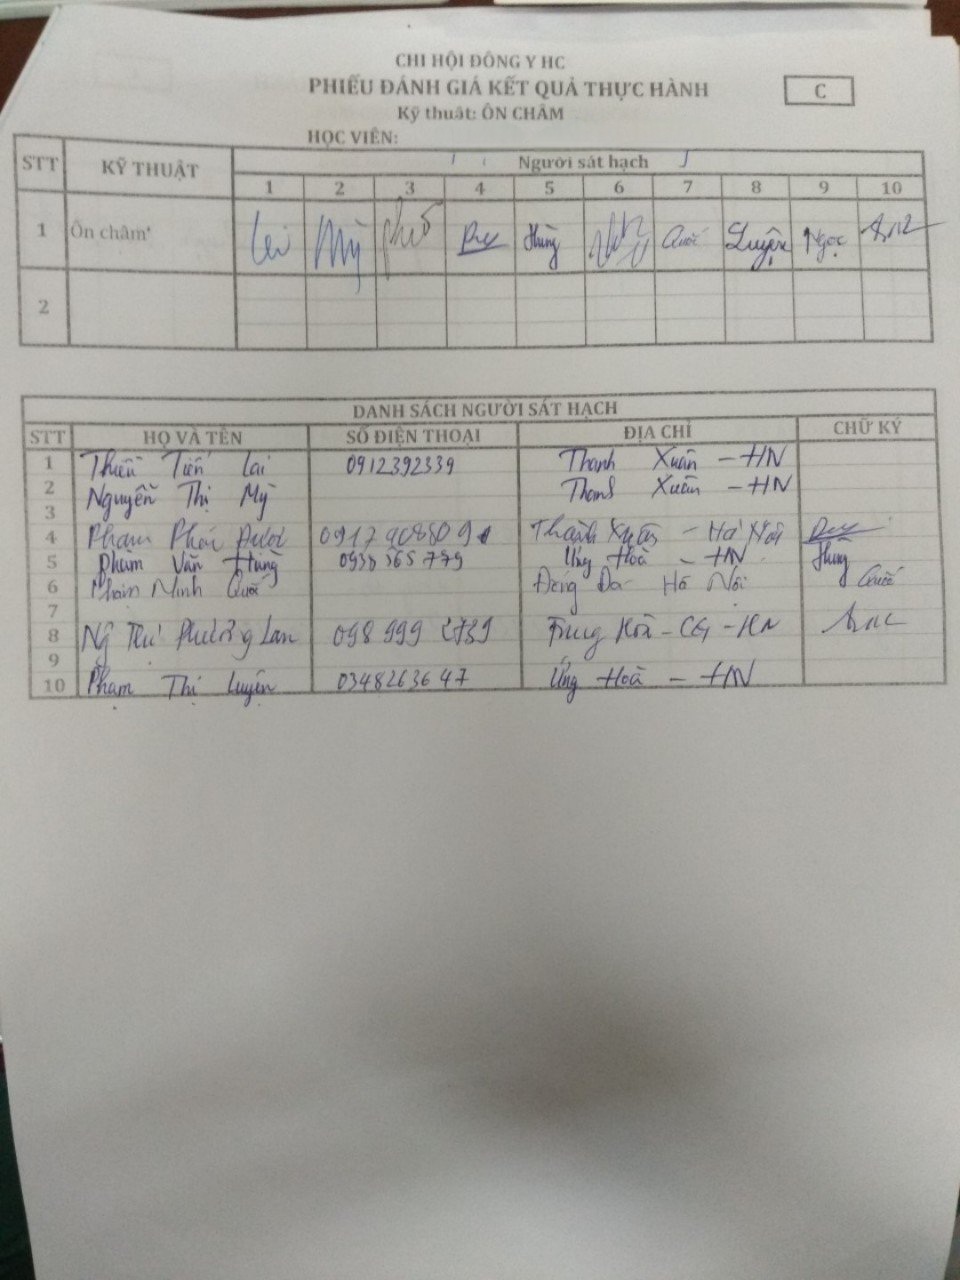 CHI HỘI ĐÔNG Y HC
PHIẾU ĐÁNH GIÁ KẾT QUẢ THỰC HÀNH
C
Kỹ thuật: ÔN CHÂM
HỌC VIÊN:
STT KỸ THUẬT Người sát hạch
1 2 3 4 5 6 7 8 9 10
1 Ôn châm Lai Mỳ Hùng Quốc Luyện Ngọc
2
DANH SÁCH NGƯỜI SÁT HẠCH
STT HỌ VÀ TÊN SỐ ĐIỆN THOẠI ĐỊA CHỈ CHỮ KÝ
1 Tiến Lai 0912392339 Thanh Xuân - HN
2 Nguyễn Thị Mỳ Thanh Xuân - HN
3
4 Phạm Thanh Xuân - Hà Nội
5 Phạm Văn Hùng 0938365779 Ứng Hoà - HN Hùng
6 Phạm Ninh Quốc Đống Đa Hà Nội Quốc
7
8 Phương Lan 098 999 Trung Hoà - CG - HN
9
10 Phạm Thị Luyện 0348263647 Ứng Hoà - HN